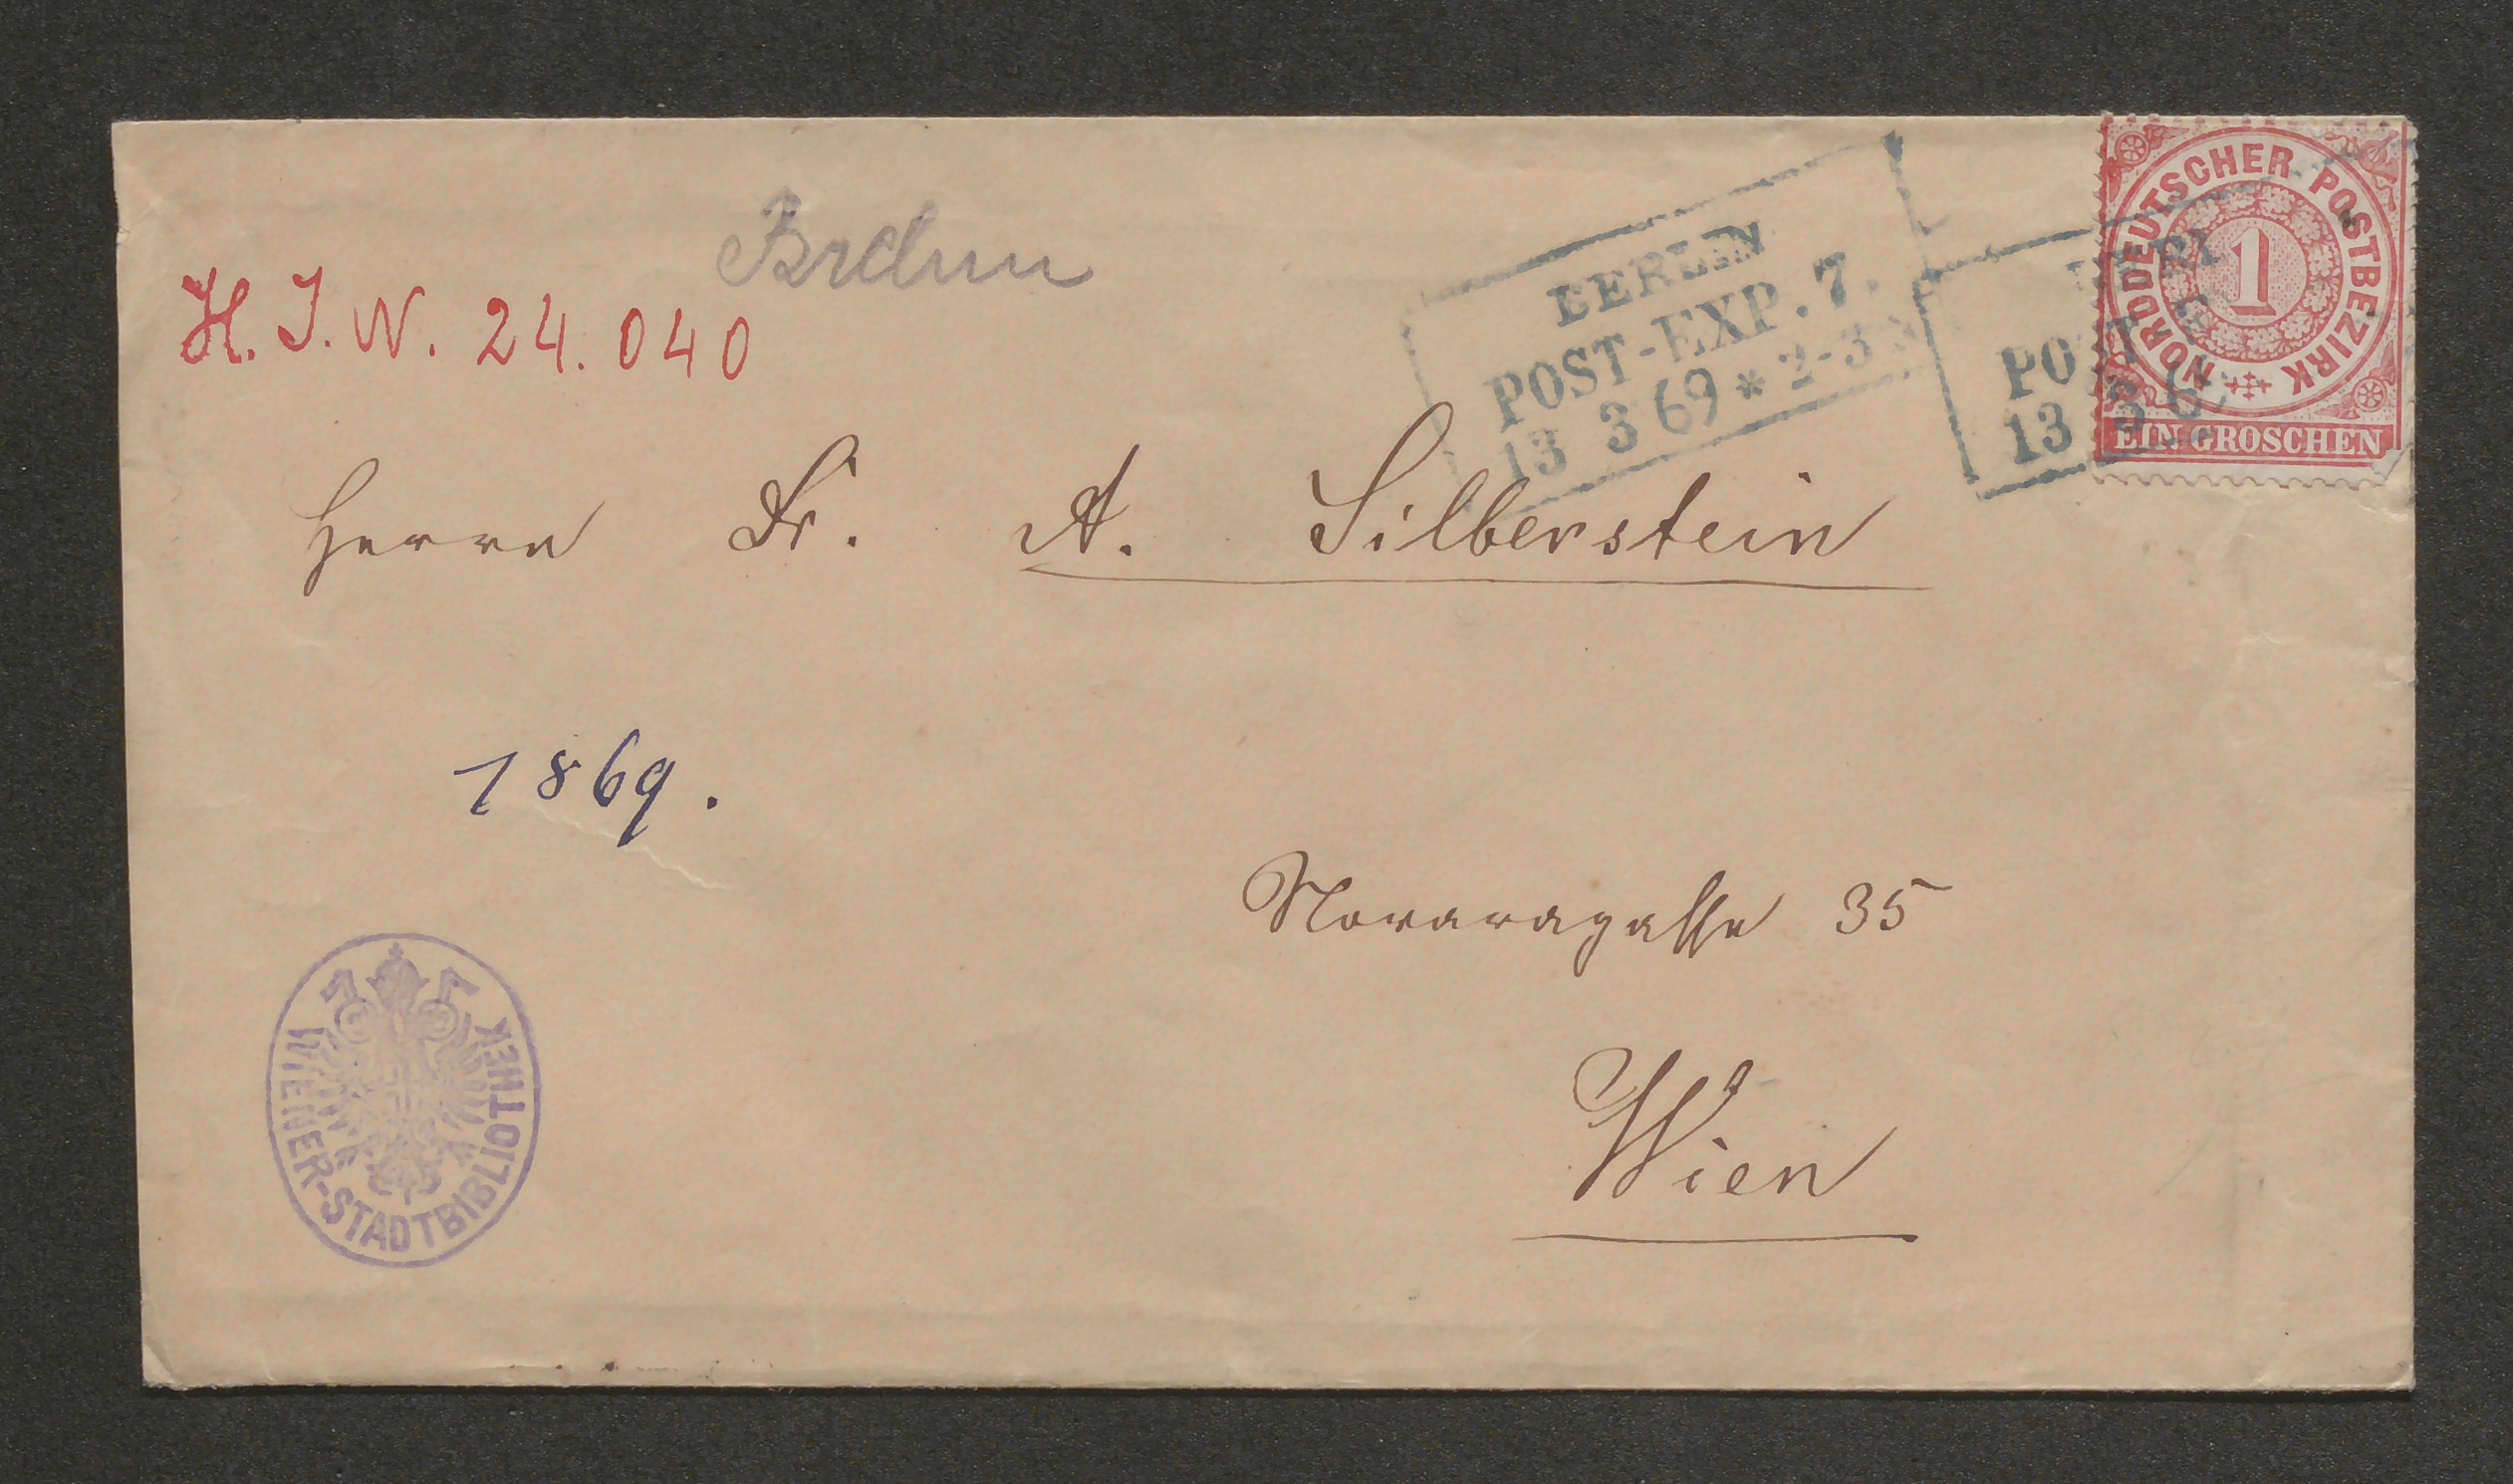 Brehm
H. I. N. 24.040
BERLIN
POST-EXP. 7.
13 3 69 * 2-3
POST
13 3 6
NORDDEUTSCHER POSTBEZIRK
1
EIN GROSCHEN
Herrn Dr. A. Silberstein
1869.
Novaragasse 35
Wien
WIENER-STADTBIBLIOTHEK